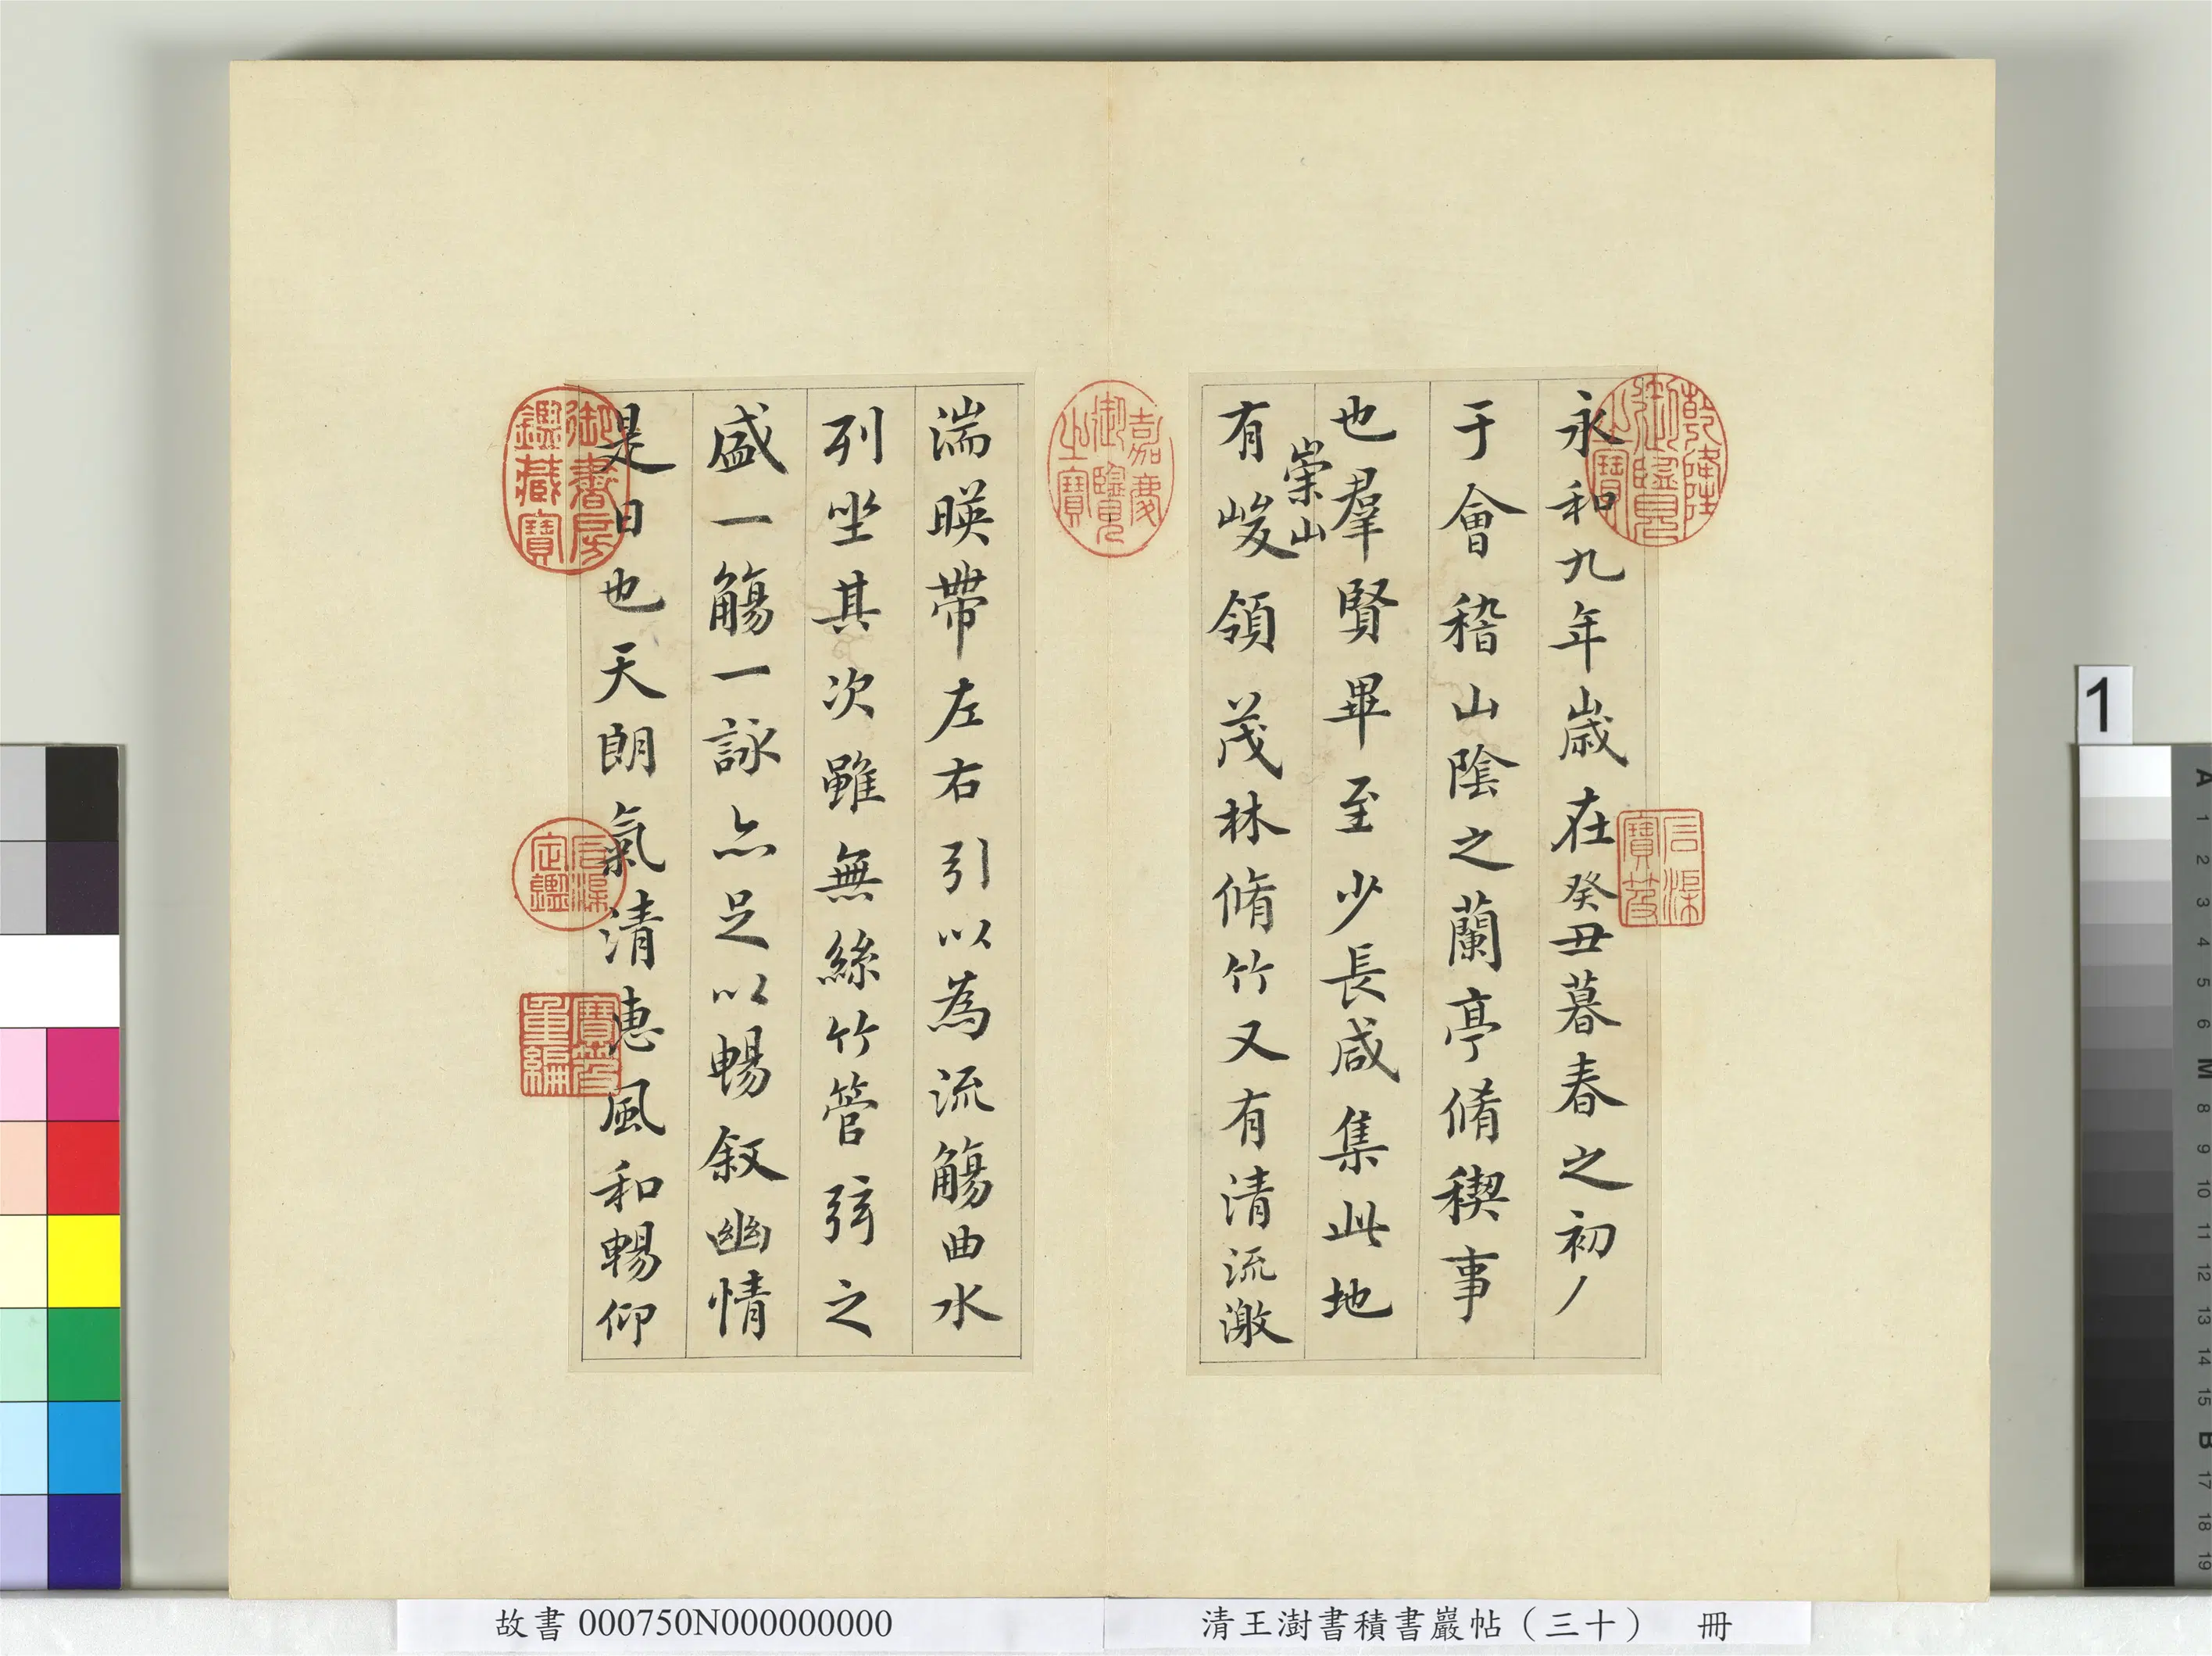 永和九年歲在癸丑暮春之初丿
于會稽山陰之蘭亭脩稧事
也羣賢畢至少長咸集此地
崇山
有峻領茂林脩竹又有清流激
湍暎帶左右引以為流觴曲水
列坐其次雖無絲竹管弦之
盛一觴一詠亦足以暢叙幽情
是日也天朗氣清惠風和暢仰
乾隆御覽之寶
石渠寶笈
嘉慶御覽之寶
御書房鑑藏寶
石渠定鑑
寶笈重編
故書 000750N000000000
清王澍書積書巖帖（三十） 冊
1
A
1
2
3
4
5
6
M
8
9
10
11
12
13
14
15
B
17
18
19